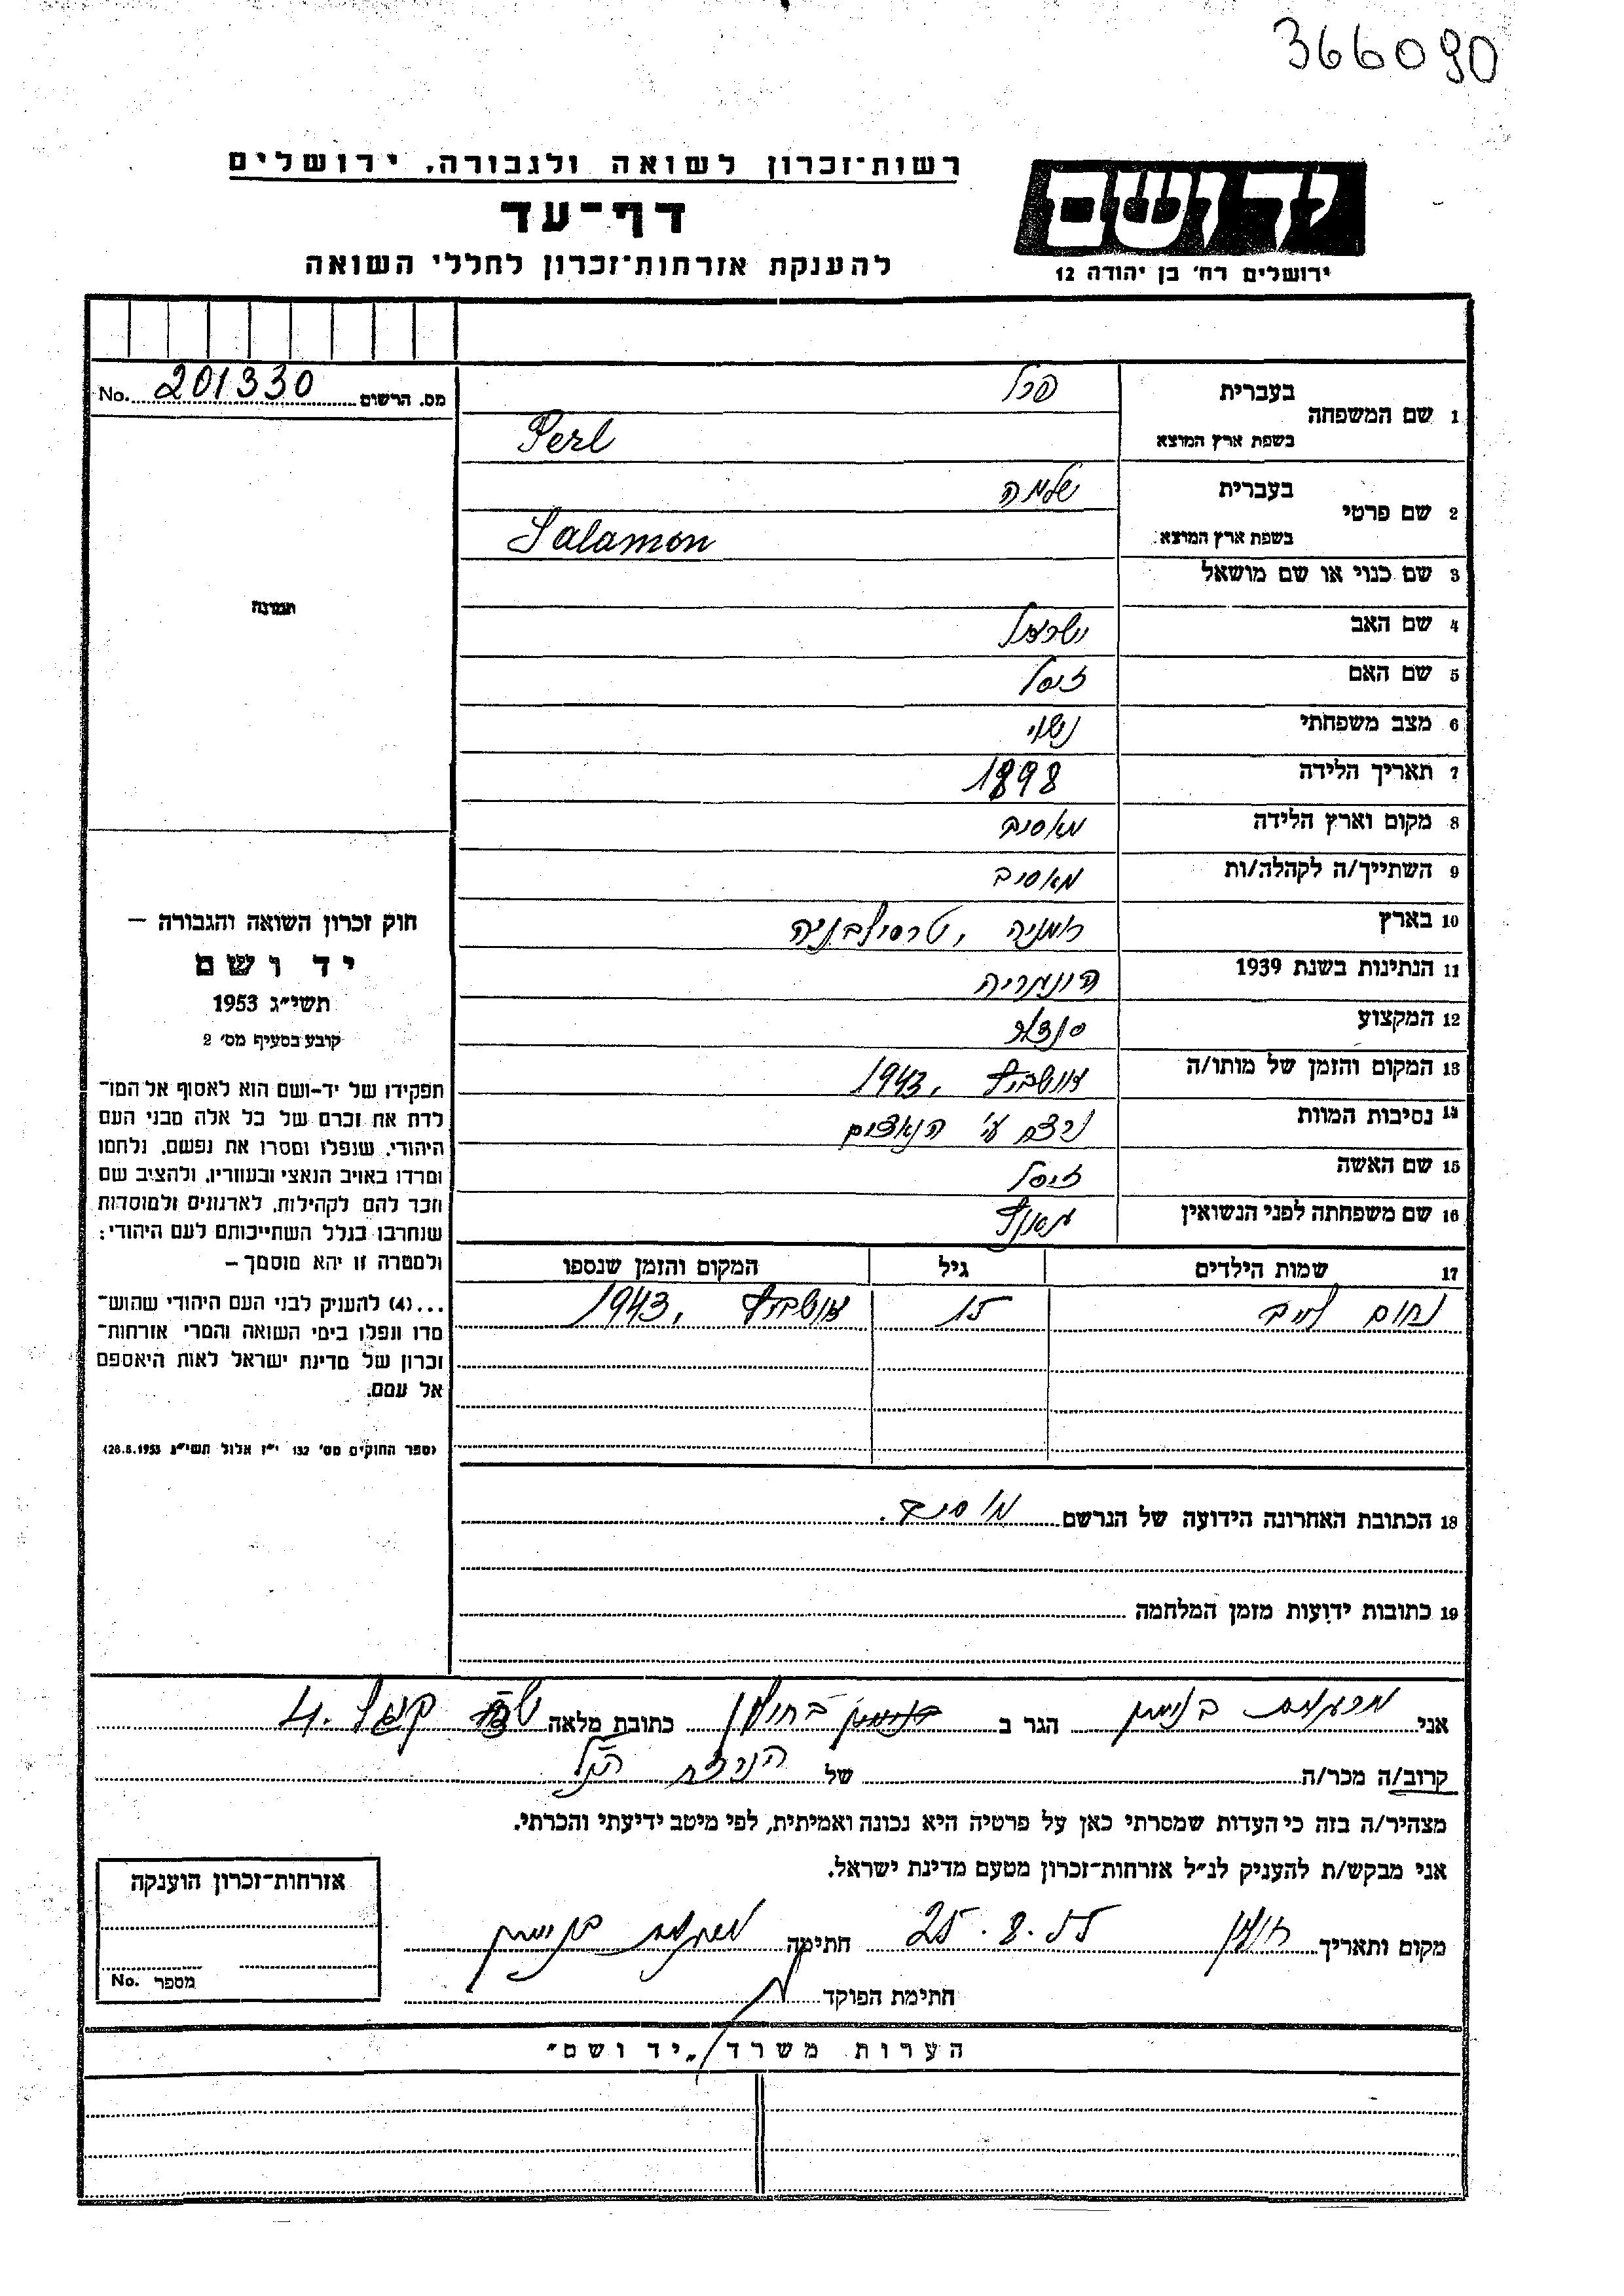 366090
רשות־זכרון לשואה ולגבורה, ירושלים
דף־עד
להענקת אזרחות־זכרון לחללי השואה
יד ושם
ירושלים רח' בן יהודה 12
מס. הרשום 201330 No.
תמונה
חוק זכרון השואה והגבורה –
יד ושם
תשי״ג 1953
קובע בסעיף מס' 2
תפקידו של יד-ושם הוא לאסוף אל המו־
לדת את זכרם של כל אלה מבני העם
היהודי, שנפלו ומסרו את נפשם, נלחמו
ומרדו באויב הנאצי ובעוזריו, ולהציב שם
וזכר להם לקהילות, לארגונים ולמוסדות
שנחרבו בגלל השתייכותם לעם היהודי;
ולמטרה זו יהא מוסמך –
...(4) להעניק לבני העם היהודי שהוש־
מדו ונפלו בימי השואה והמרי אזרחות־
זכרון של מדינת ישראל לאות היאספם
אל עמם.
(ספר החוקים מס' 132 י״ז אלול תשי״ג 28.8.1953)
1 שם המשפחה בעברית פרל
בשפת ארץ המוצא Perl
2 שם פרטי בעברית שלמה
בשפת ארץ המוצא: Salamon
3 שם כנוי או שם מושאל
4 שם האב ישראל
5 שם האם זיסל
6 מצב משפחתי נשוי
7 תאריך הלידה 1898
8 מקום וארץ הלידה מאסיב
9 השתייך/ה לקהלה/ות מאסיב
10 בארץ רומניה, טרסילבניה
11 הנתינות בשנת 1939 הונגריה
12 המקצוע סנדלר
13 המקום והזמן של מותו/ה אושביץ, 1943
14 נסיבות המוות נרצח ע״י הנאצים
15 שם האשה זיסל
16 שם משפחתה לפני הנשואין
17 שמות הילדים גיל המקום והזמן שנספו
נחום לייב 15 אושביץ, 1943
18 הכתובת האחרונה הידועה של הנרשם מוסיב.
19 כתובות ידועות מזמן המלחמה
אני בנימין הגר ב חולון כתובת מלאה 4.
קרוב/ה מכר/ה של הנרצח הנ״ל
מצהיר/ה בזה כי העדות שמסרתי כאן על פרטיה היא נכונה ואמיתית, לפי מיטב ידיעתי והכרתי.
אני מבקש/ת להעניק לנ״ל אזרחות־זכרון מטעם מדינת ישראל.
מקום ותאריך חולון 25.8.55 חתימה בנימין
חתימת הפוקד
אזרחות־זכרון הוענקה
מספר No.
הערות משרד „יד ושם״